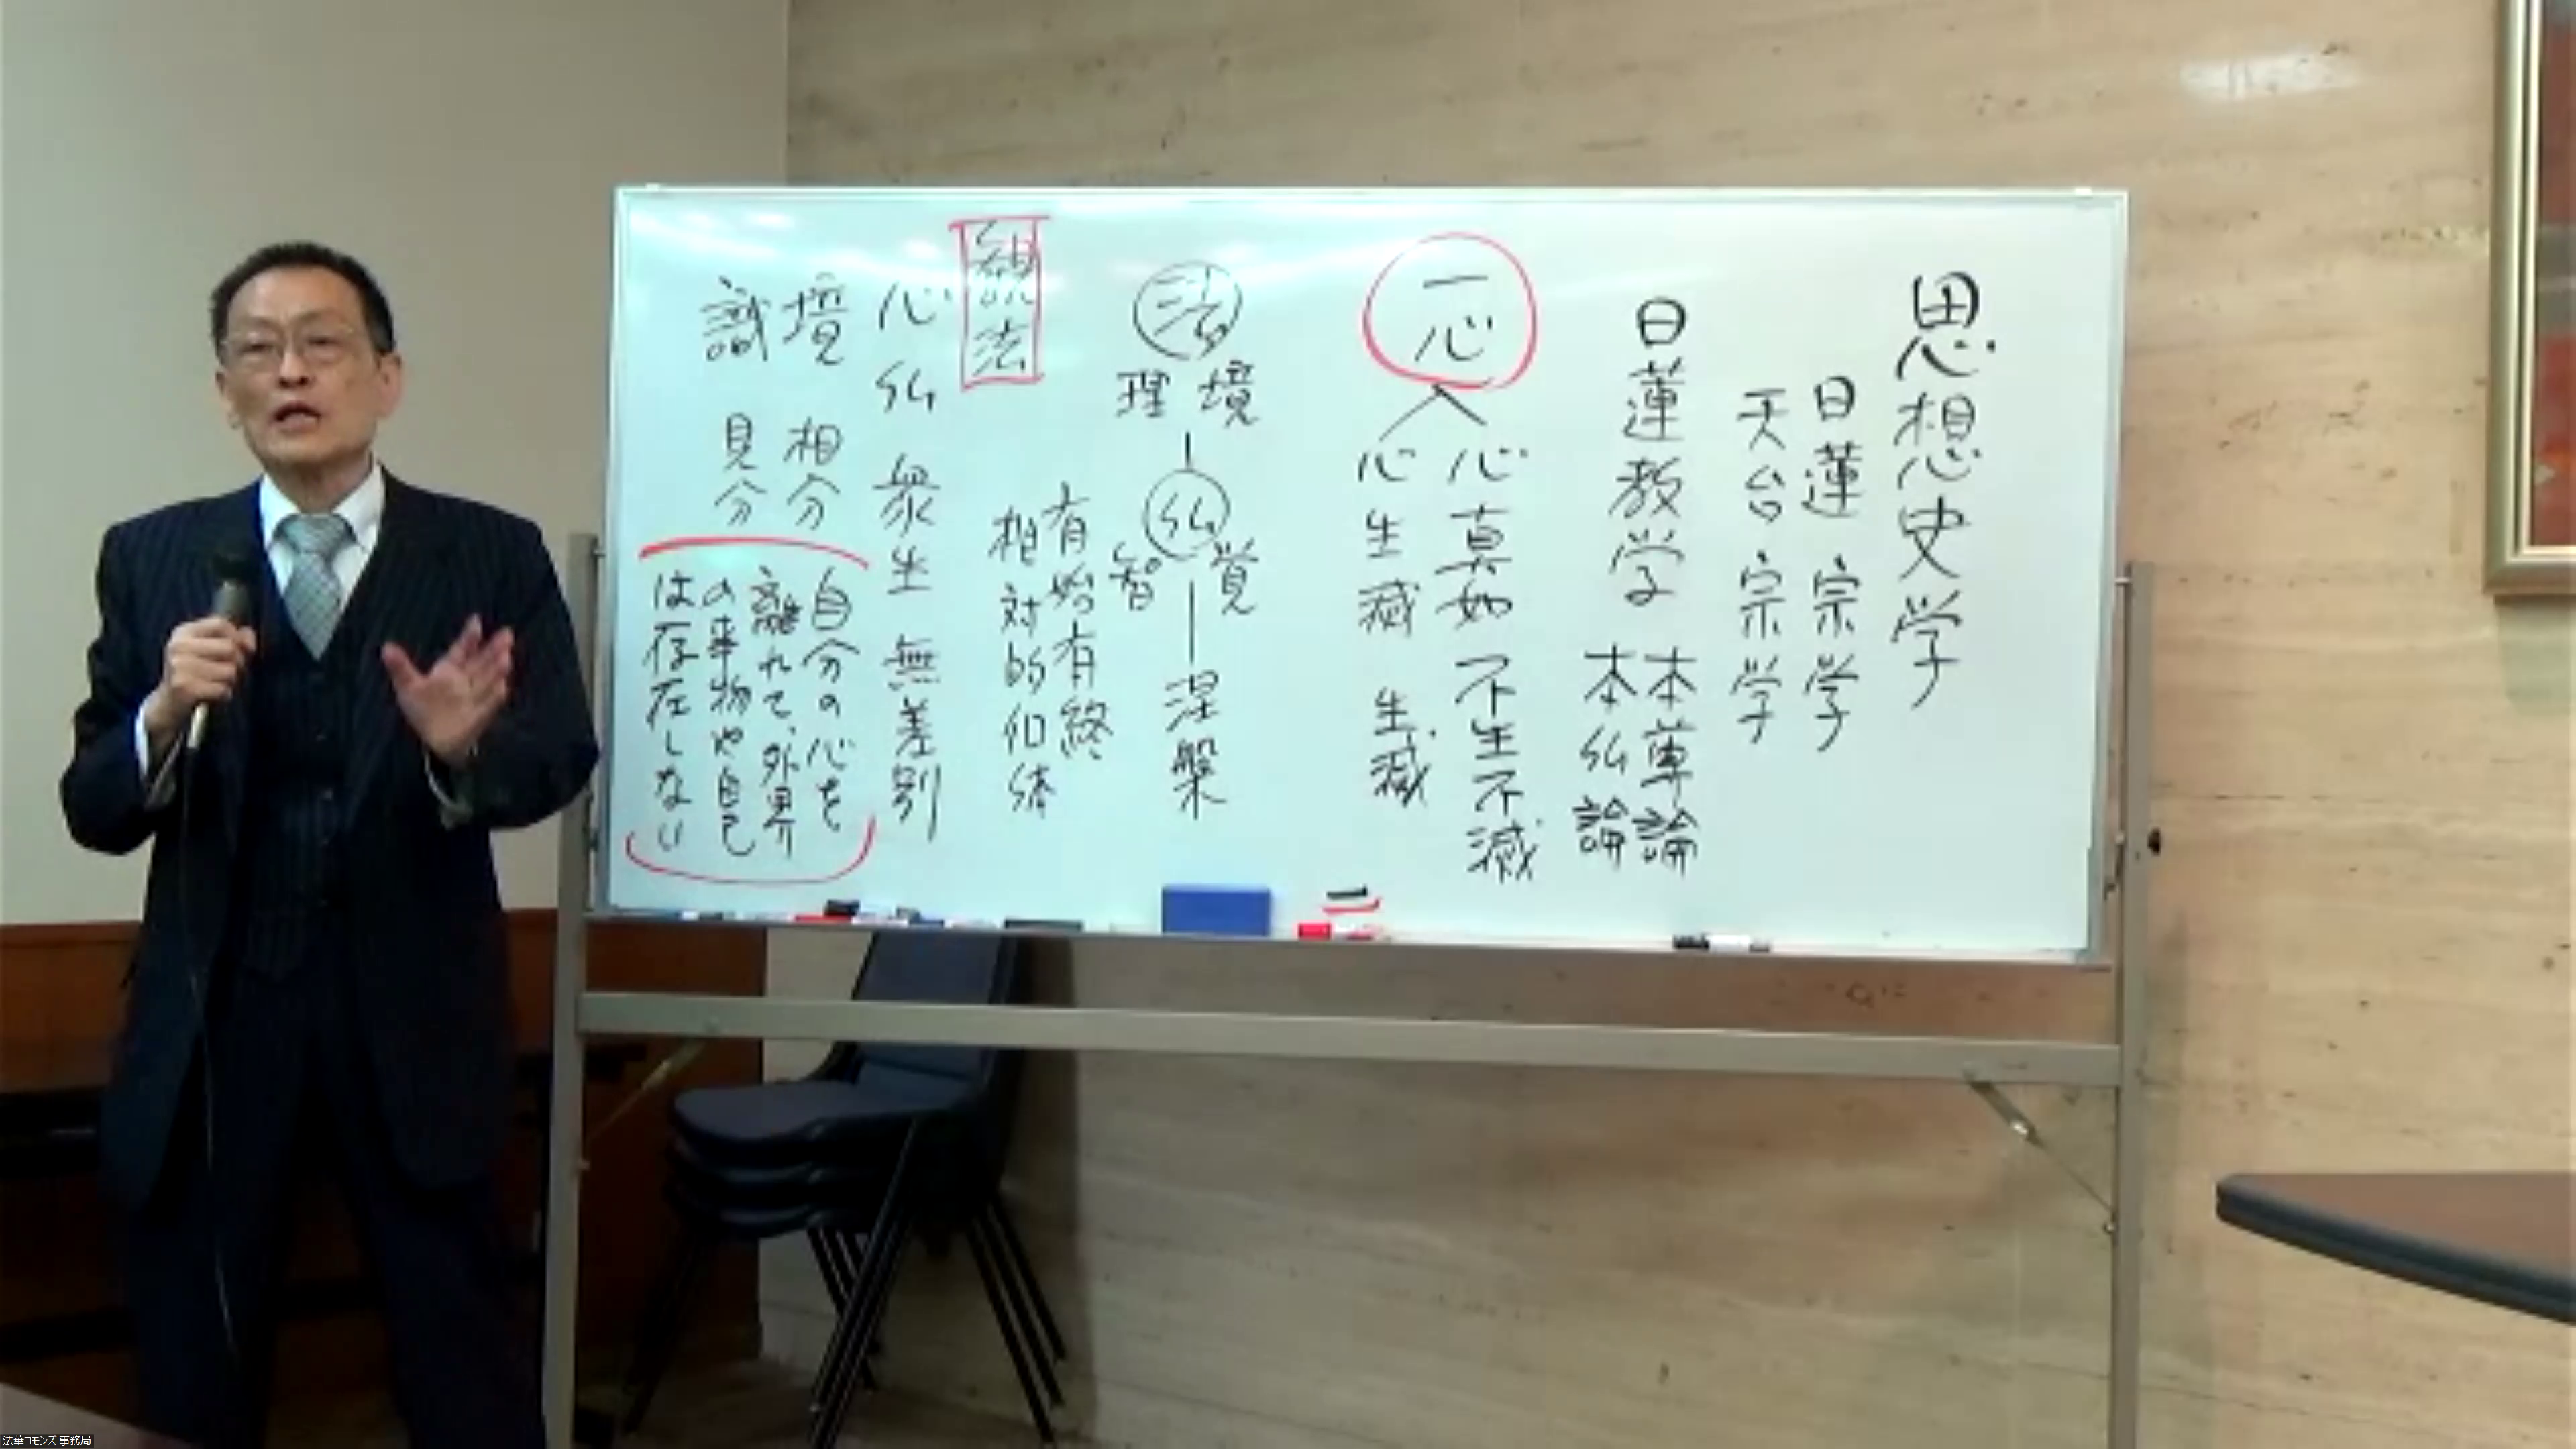 思想史学
日蓮宗学
天台宗学
日蓮教学
本尊論
本仏論
一心
心真如 不生不滅
心生滅 生滅
法
境
理
仏
覚
智
涅槃
有始有終
相対的仏
法
心仏衆生無差別
境 相分
識 見分
自分の心を
離れて、外界
の事物や自己
は存在しない
法華コモンズ 事務局